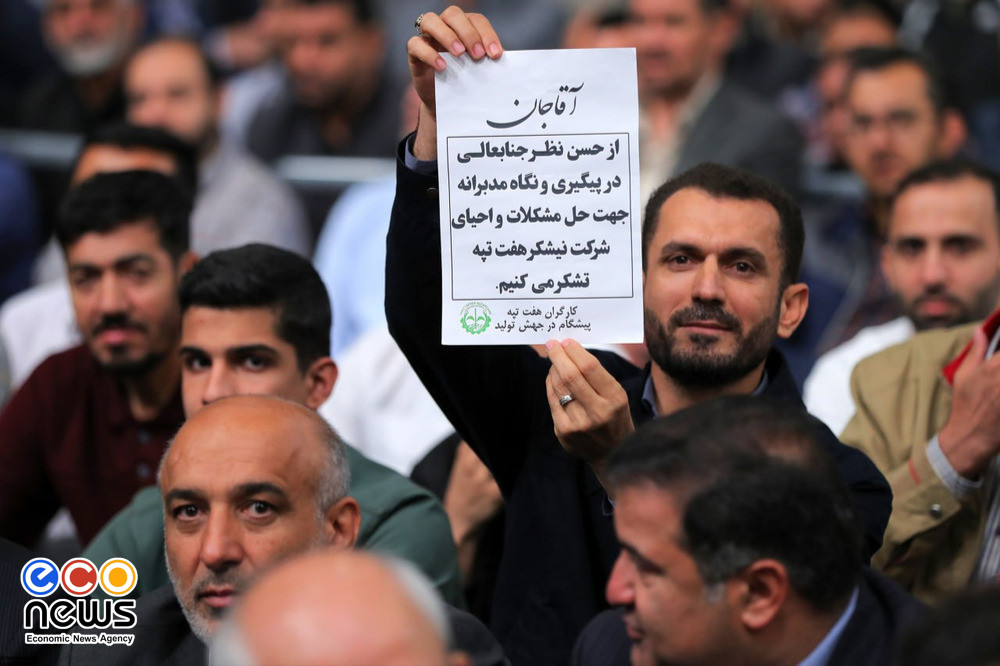 آقاجان
از حسن نظر جنابعالی
در پیگیری و نگاه مدبرانه
جهت حل مشکلات و احیای
شرکت نیشکر هفت تپه
تشکر می کنیم.
کارگران هفت تپه
پیشگام در جهش تولید
eco
news
Economic News Agency